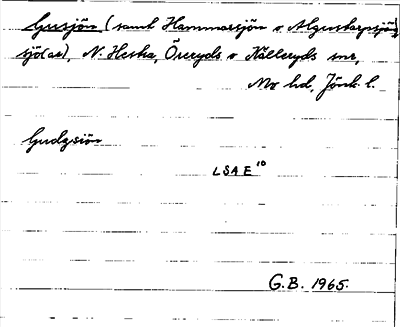 Gusjön (samt Hammarsjön o Algustorpasjön)
sjö(ar), N. Hestra, Öreryds o Kålleryds snr,
Mo hd, Jönk. l.
Gudzsiön
LSA E 10
G.B. 1965.